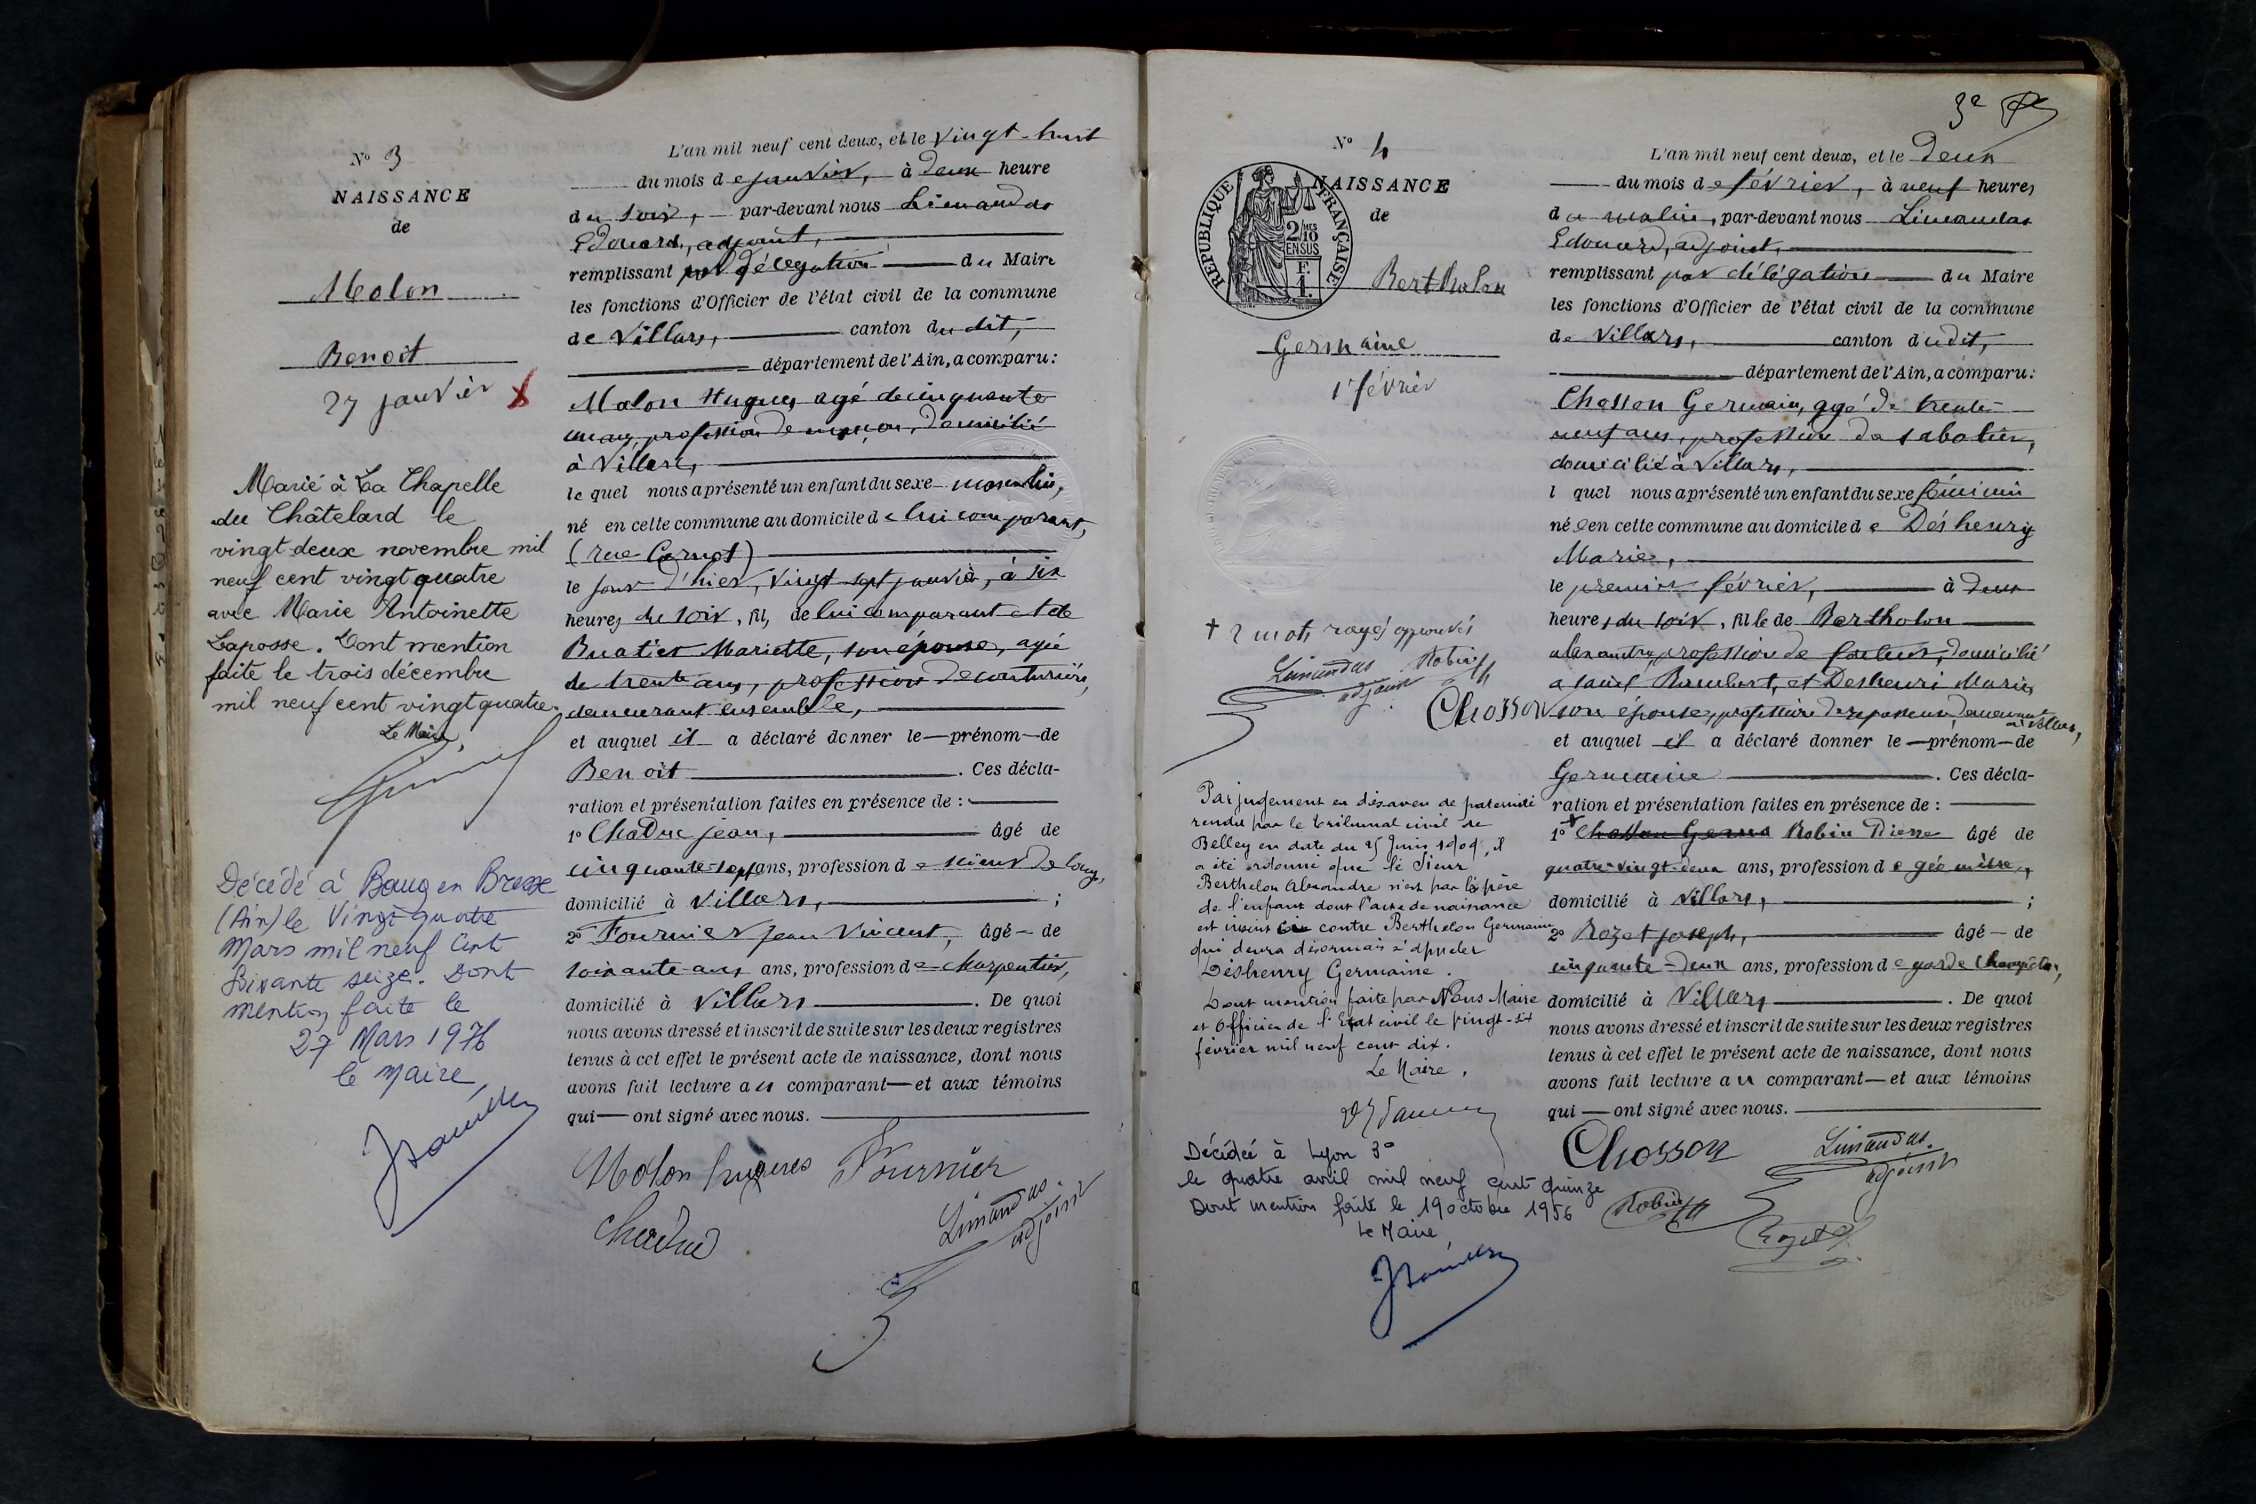 N° 3
NAISSANCE
de
Molon
Benoit
27 janvier
Marié à La Chapelle
du Châtelard le
vingt deux novembre mil
neuf cent vingt quatre
avec Marie Antoinette
Laposse. Dont mention
faite le trois décembre
mil neuf cent vingt quatre.
Le Maire,
Décédé à Bourg en Bresse
(Ain) le Vingt quatre
Mars mil neuf Cent
Soixante seize. Dont
mention faite le
27 Mars 1976
le Maire
L'an mil neuf cent deux, et le vingt-huit
du mois de janvier, à deux heure
du soir, par-devant nous Limandas
Edouard, adjoint,
remplissant par délégation du Maire
les fonctions d'Officier de l'état civil de la commune
de Villars, canton du dit,
département de l'Ain, a comparu:
Molon Hugues agé de cinquante
un ans, profession de maçon, domicilié
à Villars,
le quel nous a présenté un enfant du sexe masculin,
né en cette commune au domicile de lui comparant,
(rue Carnot)
le jour d'hier, vingt sept janvier, à six
heures du soir, fils de lui comparant et de
Buatier Mariette, son épouse, agée
de trente ans, profession de couturière,
demeurant ensemble,
et auquel il a déclaré donner le prénom de
Benoit. Ces décla-
ration et présentation faites en présence de :
1° Chaduc jean, âgé de
cinquante-sept ans, profession de scieur de long,
domicilié à Villars, ;
2° Fournier jean Vincent, âgé de
soixante ans ans, profession de charpentier,
domicilié à Villars. De quoi
nous avons dressé et inscrit de suite sur les deux registres
tenus à cet effet le présent acte de naissance, dont nous
avons fait lecture au comparant et aux témoins
qui ont signé avec nous.
Molon hugues Fournier
Chaduc
Limandas
adjoint
3e
N° 4
NAISSANCE
de
REPUBLIQUE FRANÇAISE
2/10 MES
EN SUS
F.
1.
Bertholon
Germaine
1 février
† 2 mots rayés approuvés
Limandas Robin
adjoint
Chosson
Par jugement en désaveu de paternité
rendu par le tribunal civil de
Belley en date du 25 Juin 1909, il
a été ordonné que le Sieur
Berthelon Alexandre n'est pas le père
de l'enfant dont l'acte de naissance
est inscrit ci contre Berthelon Germaine
qui devra désormais s'appeler
Déshenry Germaine.
Dont mention faite par Nous Maire
et Officier de l'Etat civil le vingt-six
février mil neuf cent dix.
Le Maire,
Décédée à Lyon 3°
le quatre avril mil neuf cent quinze
Dont mention faite le 19 octobre 1956
Le Maire,
L'an mil neuf cent deux, et le deux
du mois de février, à neuf heures
du matin, par-devant nous Limandas
Edouard, adjoint,
remplissant par délégation du Maire
les fonctions d'Officier de l'état civil de la commune
de Villars, canton dudit,
département de l'Ain, a comparu:
Chosson Germain, agé de trente-
neuf ans, profession de sabotier,
domicilié à Villars,
l quel nous a présenté un enfant du sexe féminin
née en cette commune au domicile de Déshenry
Marie,
le premier février, à deux
heures du soir, fille de Bertholon
alexandre, profession de , domicilié
a saint Rambert, et Deshenri Marie,
son épouse, profession de repasseuse, demeurant
à Villars,
et auquel il a déclaré donner le prénom de
Germaine. Ces décla-
ration et présentation faites en présence de :
1° Robin Pierre âgé de
quatre-vingt-deux ans, profession de géomètre,
domicilié à Villars, ;
2° Rozet joseph, âgé de
cinquante-deux ans, profession de garde champêtre,
domicilié à Villars. De quoi
nous avons dressé et inscrit de suite sur les deux registres
tenus à cet effet le présent acte de naissance, dont nous
avons fait lecture au comparant et aux témoins
qui ont signé avec nous.
Chosson Limandas.
adjoint
Robin
Rozet